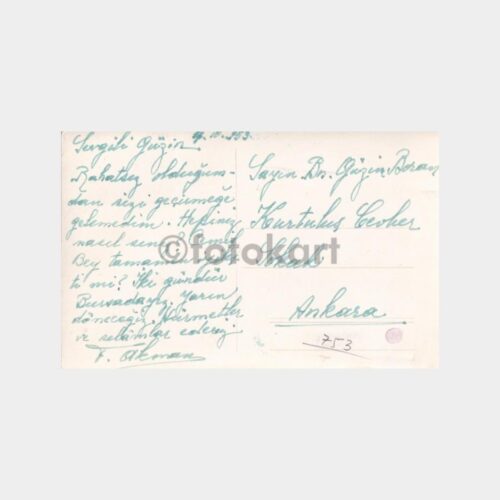 Sevgili Güzin
Rahatsız olduğum-
dan sizi geçirmeğe
gelemedim. Hepiniz
nasılsınız
Bey tamamen
ti mi? İki gündür
Bursadayız. Yarın
döneceğiz. Hürmetler
ve selâmlar ederiz
F. Akman
Sayın Bn. Güzin Boran
Kurtuluş Cevher
Ankara
753
©fotokart